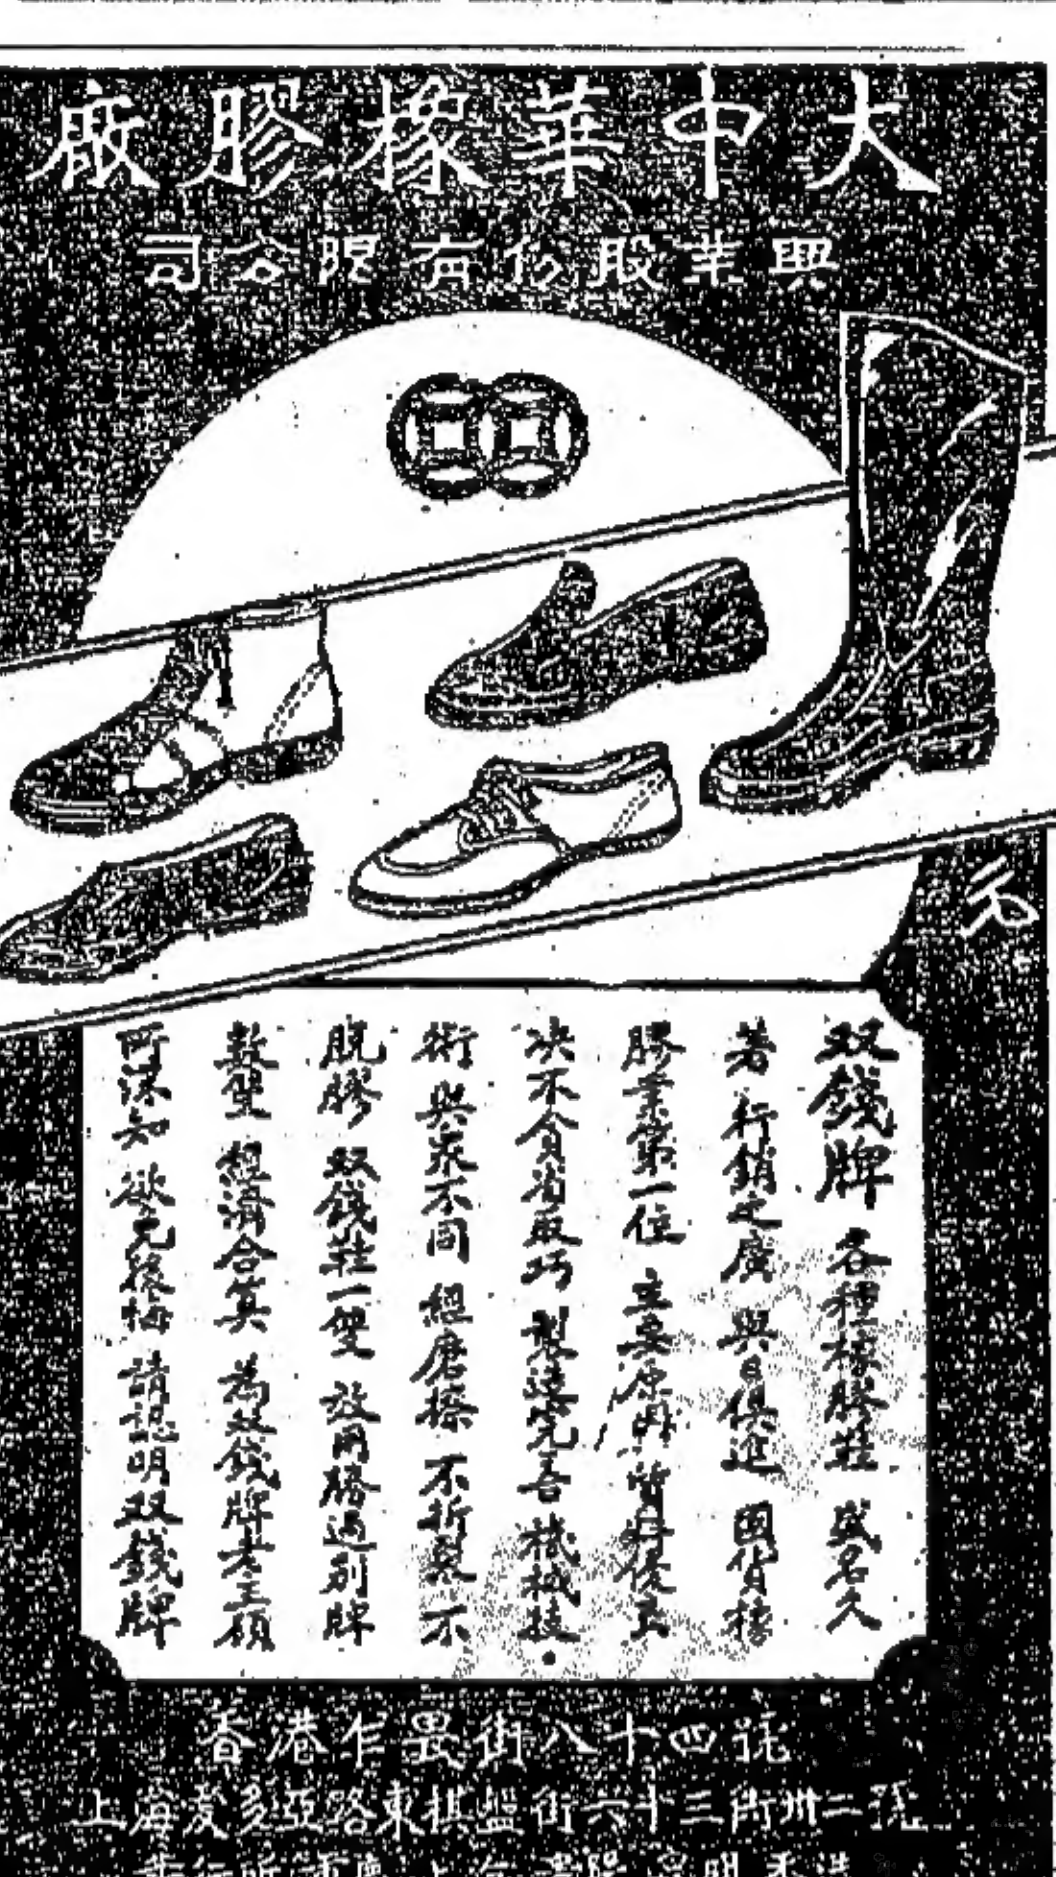 大中華橡膠廠
興業股份有限公司
双錢牌 各種橡膠鞋 成名久
著 行銷之廣 與日俱進 國貨橡
膠業第一位 主要原料 皆採優良
决不貪省取巧 製造完善 機械技
術 與衆不同 經磨擦 不折裂 不
脫膠 双錢鞋一雙 效用勝過別牌
數雙 經濟合算 為双錢牌老主顧
所深知 欲免後悔 請認明双錢牌
香港乍畏街八十四號
上海愛多亞路東棋盤街六十三衖卅二號